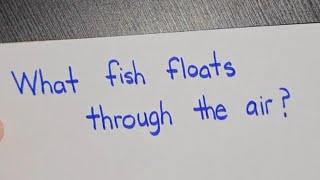 What fish floats
through the air?